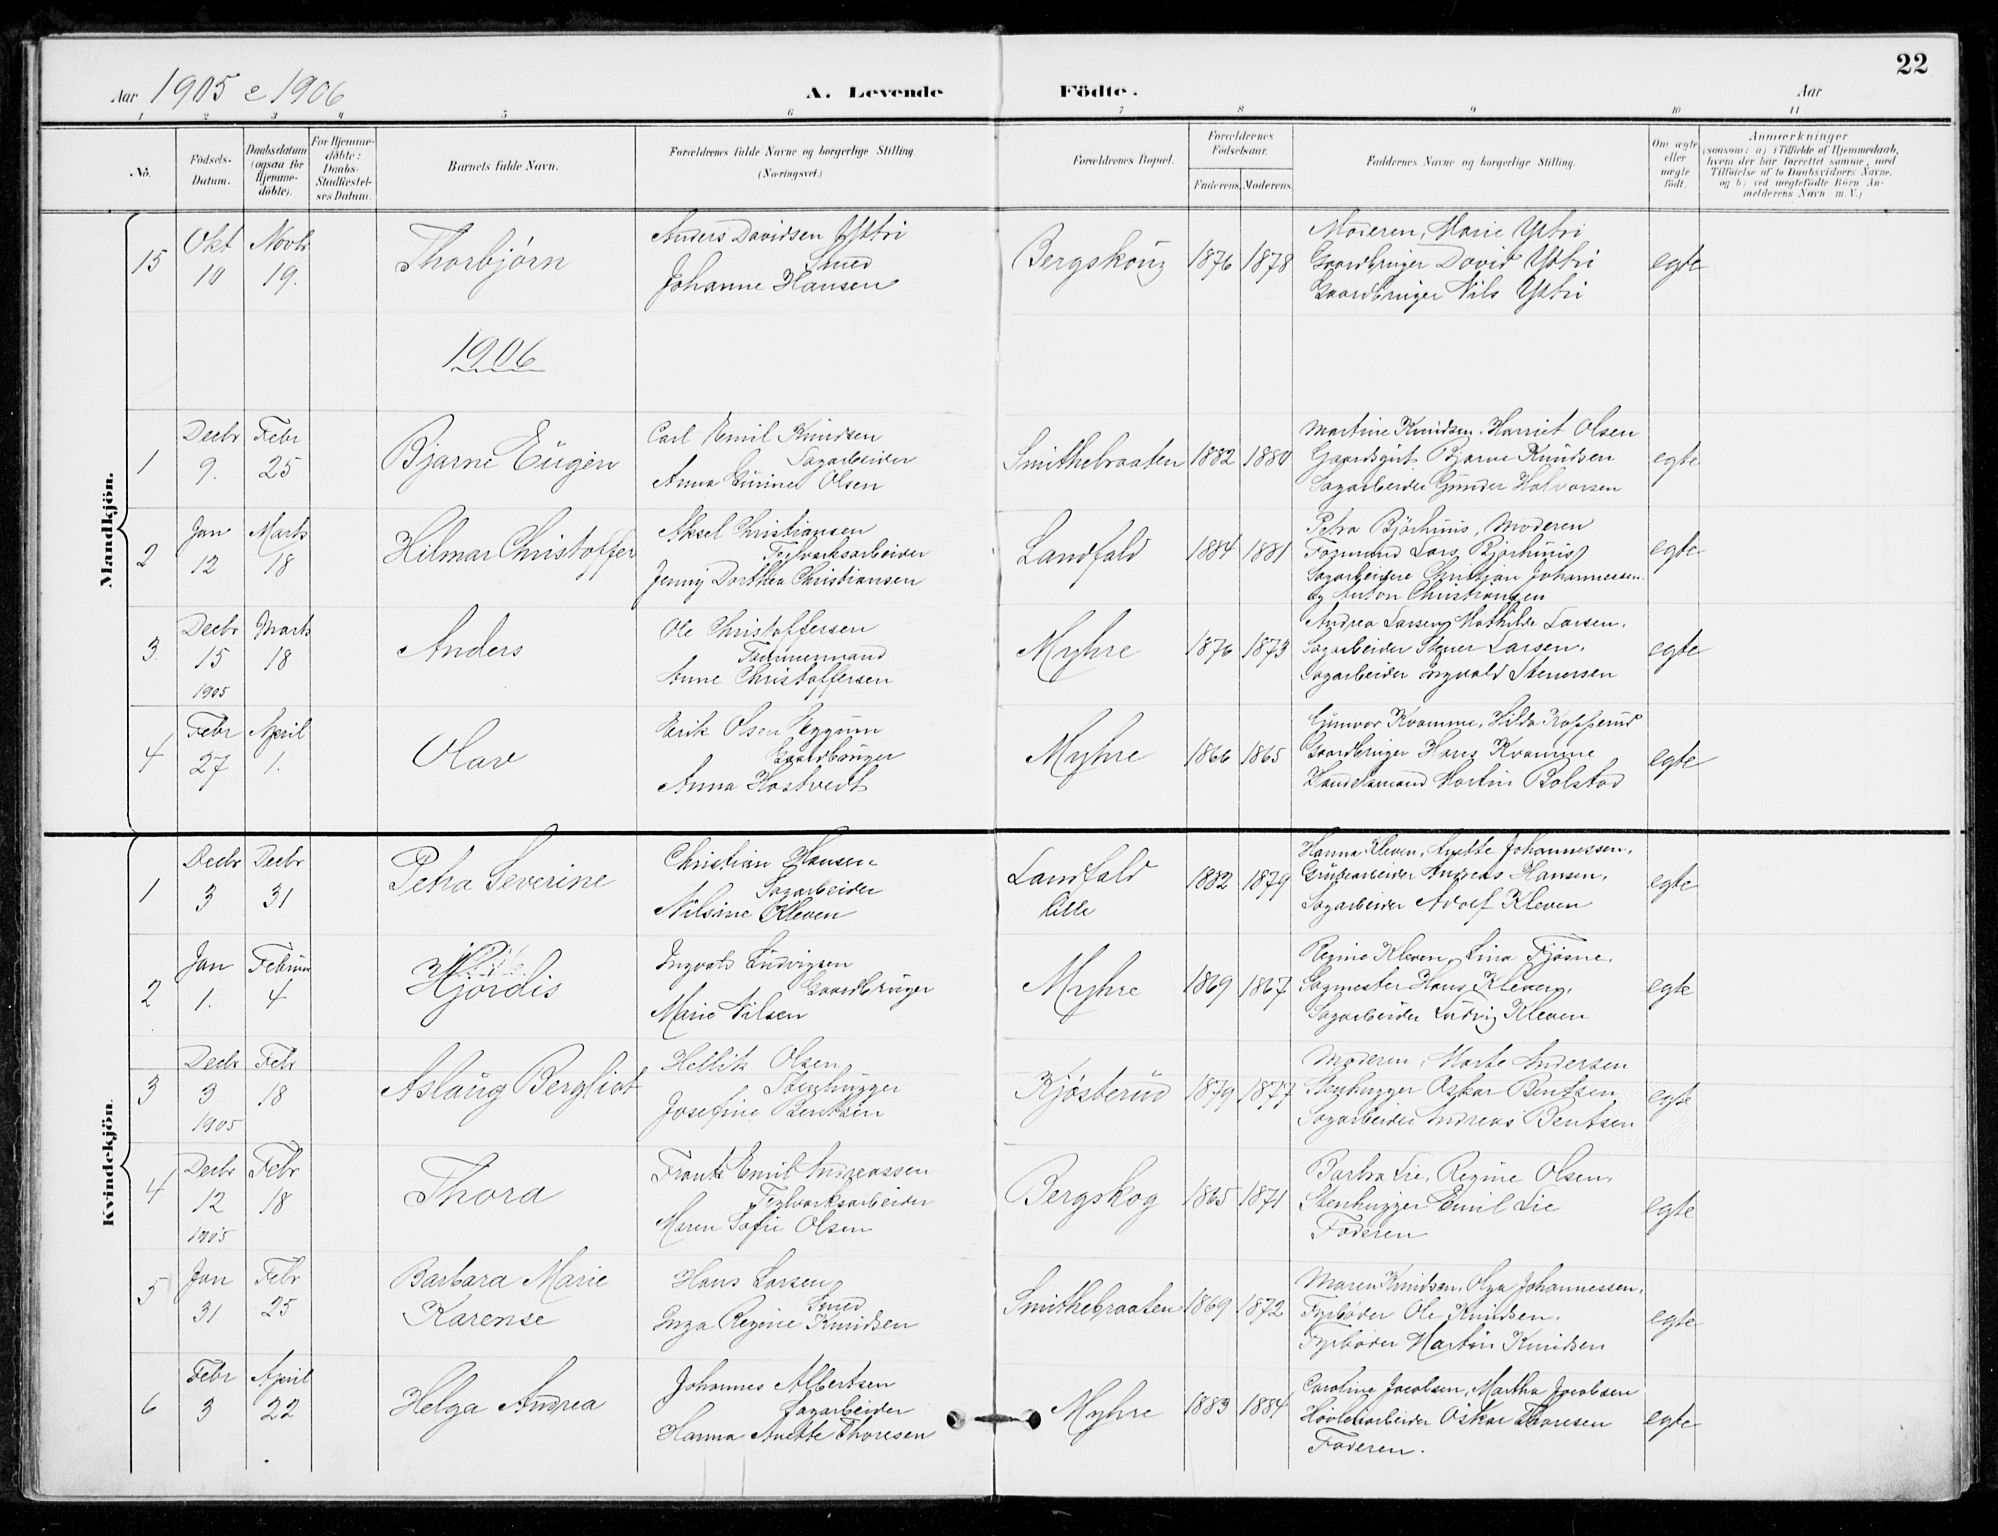 22
Aar 1905 & 1906
A. Levende Födte.
Aar
1 2 3 4 5 6 7 8 9 10 11
No.
Födsels-Datum.
Daabsdatum (ogsaa for Hjemmedöbte).
For Hjemmedöbte: Daabs-Stadfæstelses Datum.
Barnets fulde Navn.
Forældrenes fulde Navne og borgerlige Stilling. (Næringsvei.)
Forældrenes Bopæl.
Forældrenes Födselsaar.
Faderens. Moderens.
Faddernes Navne og borgerlige Stilling.
Om ægte eller uægte födt.
Anmærkninger
(saasom: a) i Tilfælde af Hjemmedaab, hvem der har forrettet samme, med Tilföielse af to Daabsvidners Navne, og b) ved uægtefödte Börn Anmelderens Navn m. V.)
Mandkjön.
15 Okt 10 Novbr 19. Thorbjørn
Anders Davidsen Ystri
Smed
Johanne Hansen
Bergskoug 1876 1878
Moderen, Marie Ystri
Gaardbruger David Ystri
Gaardbruger Nils Ystri
egte
1906
1 Decbr 9. Febr 25 Bjarne Eugen
Carl Emil Knudsen
Sagarbeider
Anna Gurine Olsen
Smithebraaten 1882 1880
Martine Knudsen, Harriet Olsen
Gaardsgut Bjarne Knudsen
Sagarbeider Gunder Halvorsen
egte
2 Jan 12 Marts 18 Hilmar Christoffer
Aksel Christiansen
Teglværksarbeider
Jenny Dorthea Christiansen
Landfald 1884 1881
Petra Bjørhuus, Moderen
Formand Lars Bjørhuus
Sagarbeidere Christian Johannessen
og Anton Christiansen
egte
3. Decbr 15 1905 Marts 18 Anders
Ole Christoffersen
Tømmermand
Anne Christoffersen
Myhre 1876 1873
Andrea Larsen, Mathilde Larsen,
Sagarbeider Stener Larsen,
Sagarbeider Ingvald Stenersen
egte
4 Febr 27 April 1. Olav
Erik Olsen Eggum
Gaardbruger
Anna Hostvedt
Myhre 1866 1865
Gunvor Kvamme, Hilda Kopperud
Gaardbruger Hans Kvamme
Handelsmand Martin Bolstad
egte
Kvindekjön.
1 Decbr 3 Decbr 31 Petra Severine
Christian Hansen
Sagarbeider
Nilsine Kleven
Landfald lille 1882 1879
Hanna Kleven, Anette Johannessen,
Grubearbeider Andreas Hansen,
Sagarbeider Adolf Kleven
egte
2 Jan 1. Februar 4 Hjørdis
Ingvald Ludvigsen
Gaardbruger
Marie Nilsen
Myhre 1869 1867
Regine Kleven, Lina Fjøsne,
Sagmester Hans Kleven,
Sagarbeider Ludvig Kleven
egte
3 Decbr 3 1905 Febr 18 Aslaug Bergliot
Hellik Olsen
Stenhugger
Josefine Bentsen
Kjøsterud 1879 1877
Moderen, Marte Andersen
Stenhugger Oskar Bentsen
Sagarbeider Andreas Bentsen
egte
4 Decbr 12 1905 Febr 18 Thora
Frants Emil Andreassen
Teglværksarbeider
Maren Sofie Olsen
Bergskog 1865 1871
Barbra Lie, Regine Olsen,
Stenhugger Emil Lie
Faderen
egte
5 Jan 31 Febr 25 Barbara Marie Karense
Hans Larsen
Smed
Inga Regine Knudsen
Smithebraaten 1869 1872
Maren Knudsen, Olga Johannessen,
Fyrbøder Ole Knudsen,
Fyrbøder Martin Knudsen
egte
6 Febr 3 April 22 Helga Andrea
Johannes Albertsen
Sagarbeider
Hanna Anette Thoresen
Myhre 1883 1884
Caroline Jacobsen, Martha Jacobsen
Høvleriarbeider Oskar Thoresen
Faderen.
egte